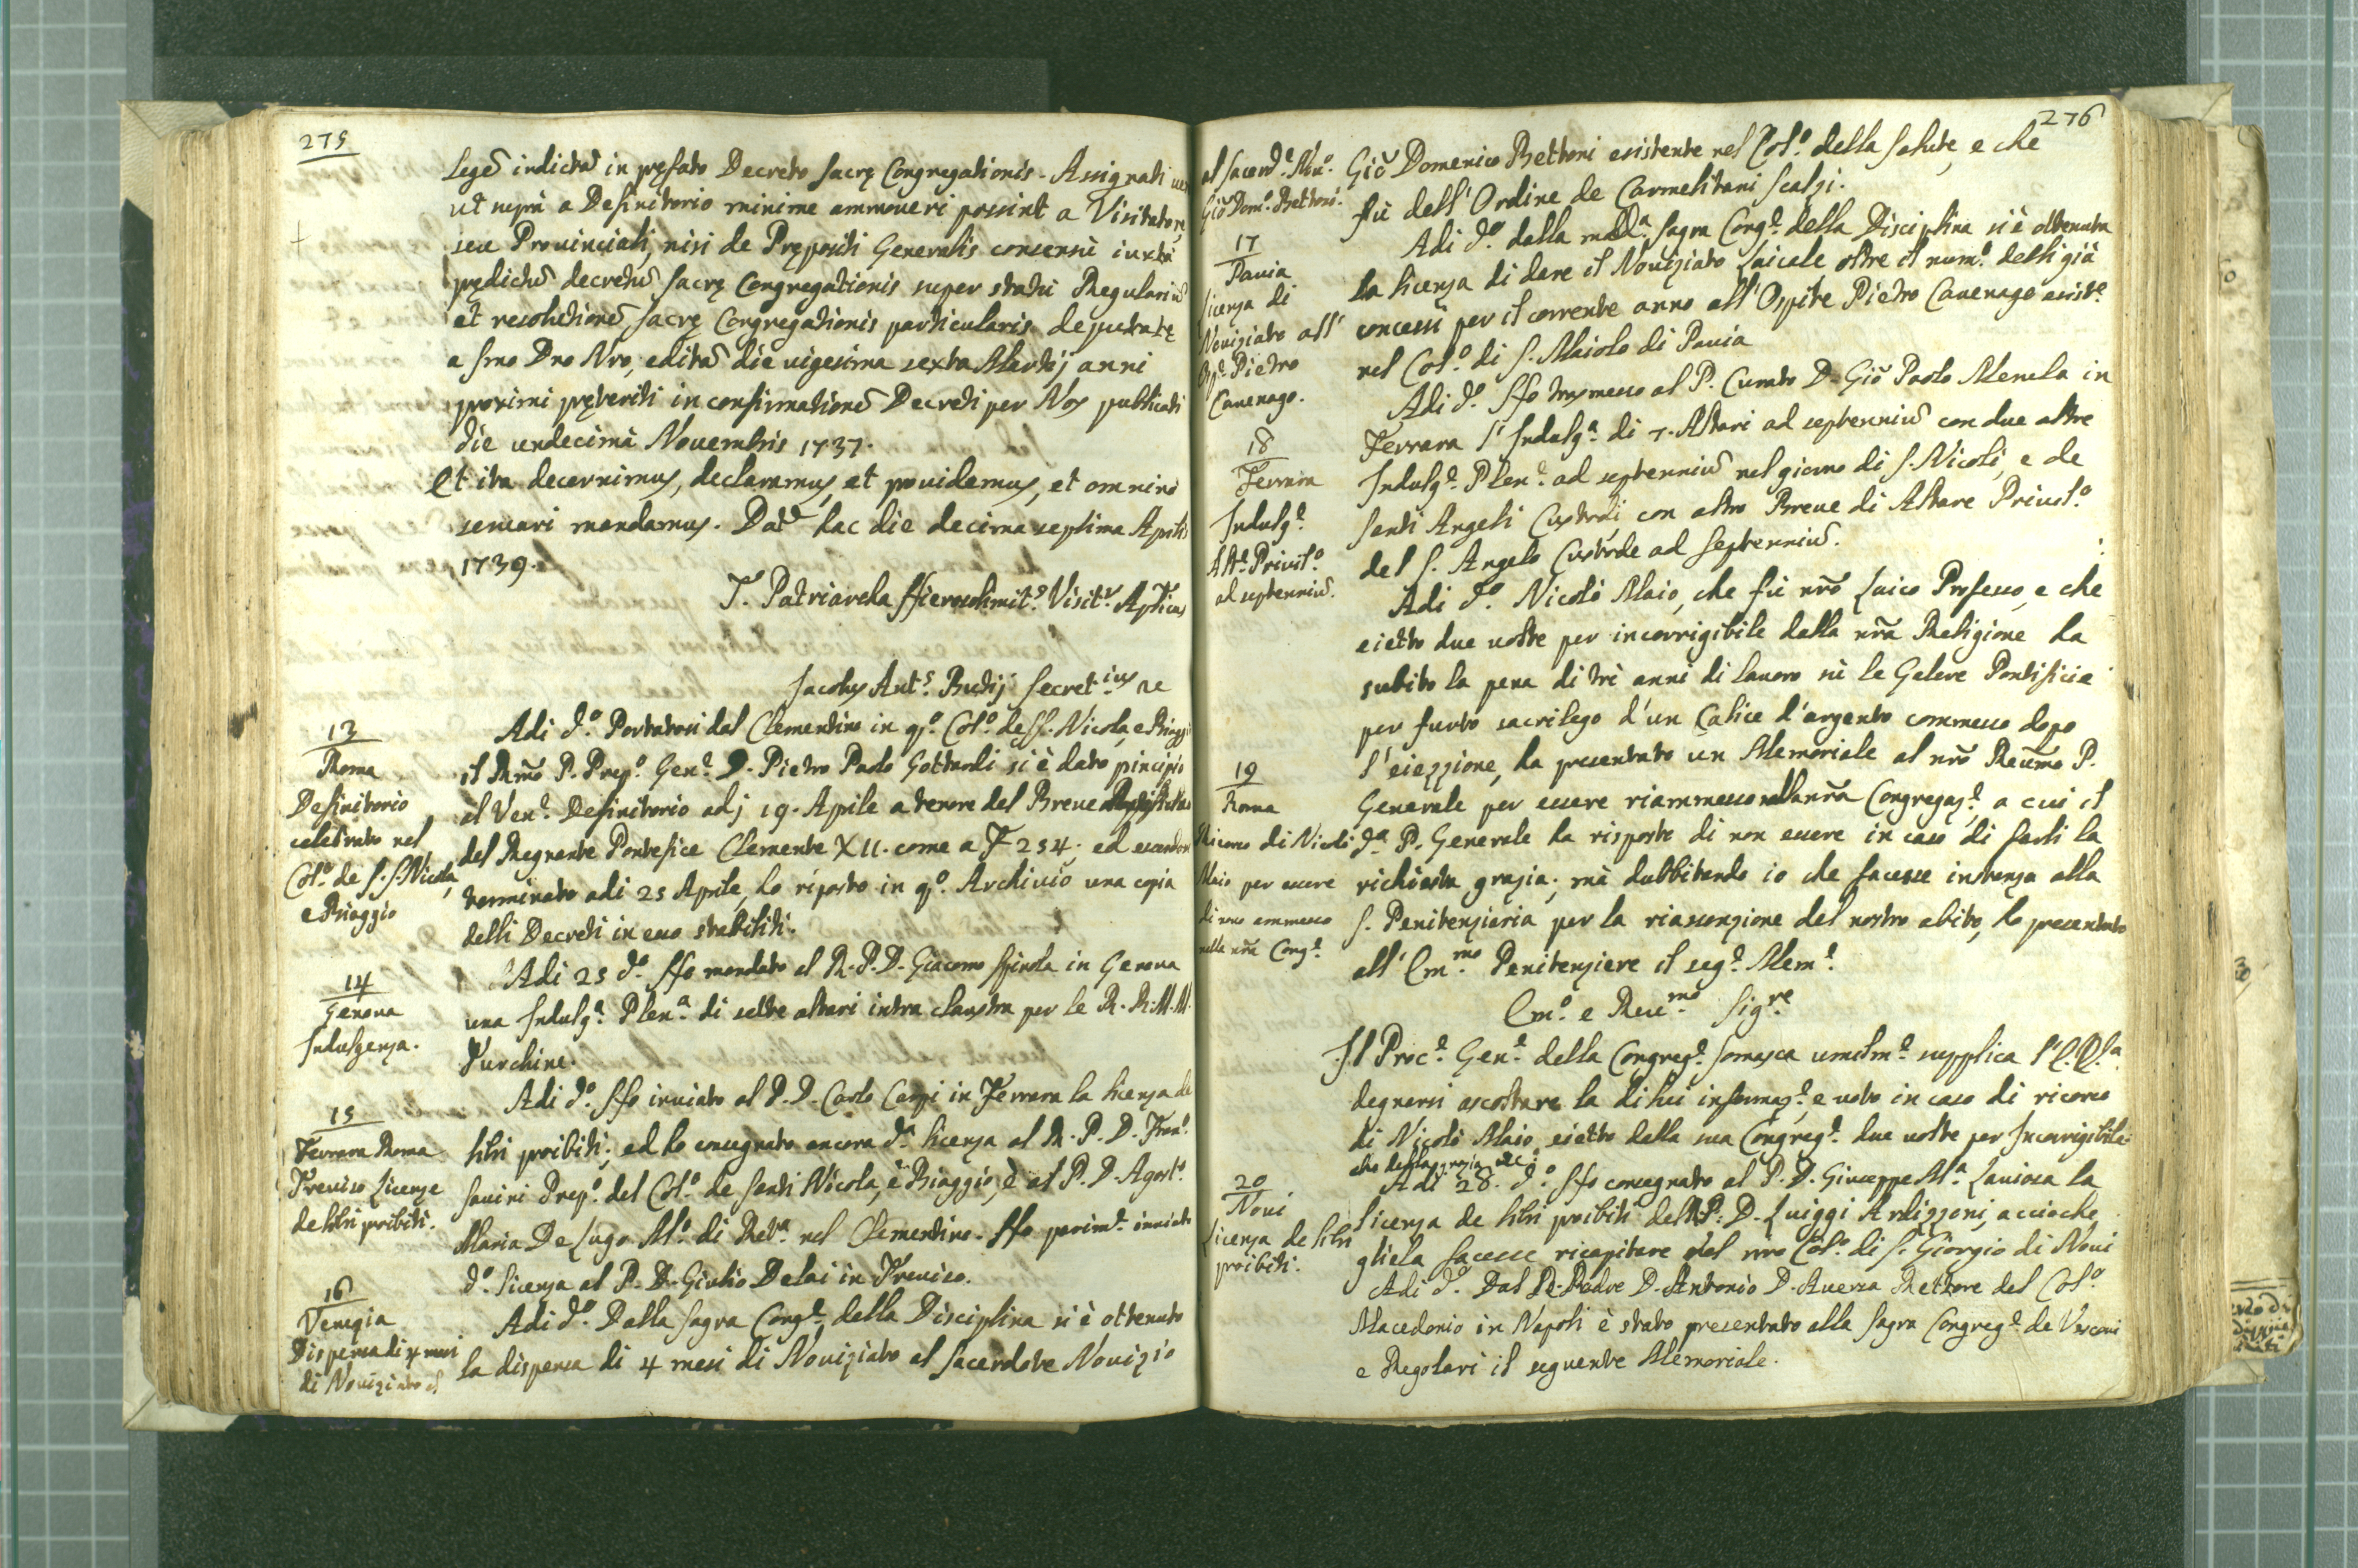 275
legẽ indictã in pręfato Decreto Sacrę Congregationis. Assignati
ut supra a Definitorio minime ammoveri possint a Visitatore,
seu Provinciali, nisi de Prępositi Generalis consensù iuxtà
prędictũ decretũ Sacrę Congregationis super statù Regulariũ
et resolutionẽ Sacrę Congregationis particularis deputatę
a Smo Dno Nro, editã die vigesima sexta Martij anni
proximi pręteriti in confirmationẽ Decreti per Nos publicati
die undecimà Novembris 1737.
Et ita decernimus, declaramus, et providemus, et omnino
servari mandamus. Dat. hac die decima septima Aprilis
1739.
F. Patriarcha Hierosolimit.s Visit.r Aplicus
Jacobus Ant.s Butij Secret.ius
13
Roma
Definitorio
celebrato nel
Col.o de S. S. Nicola,
e Biaggio
Adi d.o Portatosi dal Clementino in q.o Col.o de SS. Nicola, e Biaggio
il Rmo P. Prep.o Gen.e D. Pietro Paolo Gottardi si è dato principio
al Ven.e Definitorio adj 19. Aprile a tenore del Breve
del Regnante Pontefice Clemente XII. come a F 254. ed essendosi
terminato adi 25 Aprile, hò riposto in q.o Archivio una copia
delli Decreti in esso stabiliti.
14
Genova
Indulgenza.
Adi 25 d.o Hò mandato al R. P. D. Giacomo Spinola in Genova
una Indulg.a Plen.a di sette altari intra claustra per le R. R. M. M.
Turchine.
15
Ferrara Roma
Treviso Licenze
de libri proibiti.
Adi d.o Hò inviato al P. D. Carlo Carpi in Ferrara la licenza de
libri proibiti; ed hò consegnato ancora d.a licenza al R. P. D. Fran.o
Savini Prep.o del Col.o de Santi Nicola, e Biaggio, e al P. D. Agost.o
Maria De Lugo M.o di Ret.a nel Clementino. Hò parim.te inviato
d.a licenza al P. D. Giulio Delai in Treviso.
16
Venezia
Dispensa di 4 mesi
di Noviziato al
Adi d.o Dalla Sagra Cong.e della Disciplina si è ottenuto
la dispensa di 4 mesi di Noviziato al Sacerdote Novizio
276
al Sacerd.e No.
Giõ Dom.o Bettoni.
Giõ Domenico Bettoni esistente nel Col.o della Salute, e che
fù dell'Ordine de Carmelitani Scalzi.
17
Pavia
Licenza di
Noviziato all'
Osp.e Pietro
Cavenago.
Adi d.o dalla med.a Sagra Cong.e della Disciplina si è ottenuta
la licenza di dare il Noviziato Laicale oltre il num.o delli già
concessi per il corrente anno all'Ospite Pietro Cavenago esist.e
nel Col.o di S. Maiolo di Pavia
18
Ferrara
Indulg.e
Alt.e Privil.o
ad septenniũ.
Adi d.o Hò trasmesso al P. Curato D. Giõ Paolo Menela in
Ferrara l'Indulg.a di 7. Altari ad septenniũ con due altre
Indulg.e Plen.e ad septenniũ nel giorno di S. Nicolò, e de
Santi Angeli Custodi con altro Breve di Altare Privil.o
del S. Angelo Custode ad septenniũ.
19
Roma
Ricorso di Nicolò
Maio per essere
di novo ammesso
nella nrã Cong.e
Adi d.o Nicolò Maio, che fù nrõ Laico Professo, e che
eietto due volte per incorrigibile dalla nrã Religione ha
subito la pena di trè anni di lavoro sù le Galere Pontificie
per furto sacrilego d'un Calice d'argento commesso dopo
l'eiezzione, ha presentato un Memoriale al nrõ Reũmo P.
Generale per essere riammesso nella nrã Congregaz.e a cui il
d.o P. Generale ha risposto di non essere in caso di farli la
richiesta grazia; mà dubbitando io che facesse instanza alla
S. Penitenzieria per la riassonzione del nostro abito, hò presentato
all'Em.mo Penitenziere il seg.e Mem.e
Em.o e Rev.mo Sig.re
Il Proc.e Gen.e della Congreg.e Somasca umilm.e supplica l'E. V.a
degnarsi ascoltare la di lui informaz.e, e voto in caso di ricorso
di Nicolò Maio eietto dalla sua Congreg.e due volte per Incorrigibile
che della grazia etc:
20
Novi
Licenza de libri
proibiti.
Adi 28. d.o Hò consegnato al P. D. Giuseppe M.a Laviosa la
licenza de libri proibiti del P. D. Luiggi Ardizzoni, accioche
gliela facesse ricapitare nel nro Col.o di S. Giorgio di Novi
Adi d.o Dal R. Padre D. Antonio D. Aversa Rettore del Col.o
Macedonio in Napoli è stato presentato alla Sagra Congreg.e de Vescovi
e Regolari il seguente Memoriale.